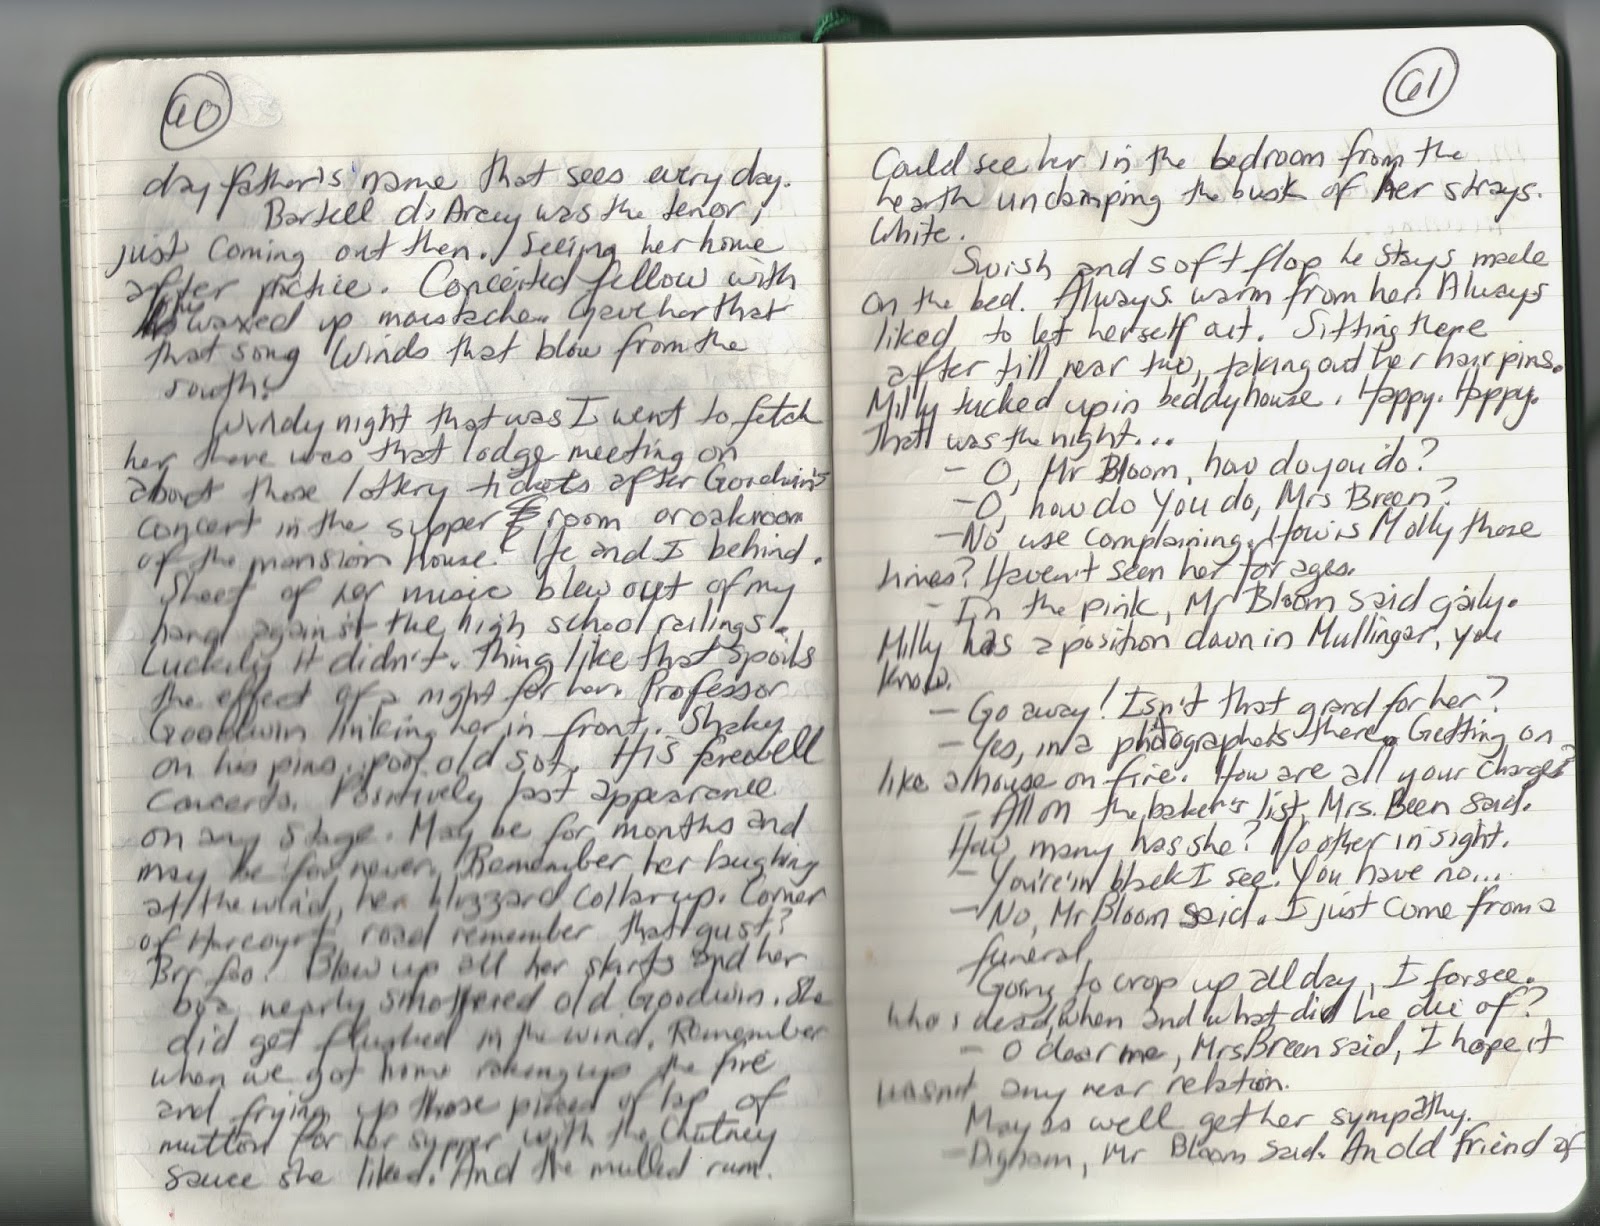 60
day father's name that sees every day.
Bartell d'Arcy was the tenor,
just coming out then. Seeing her home
after practice. Conceited fellow with
his waxed up moustache. Gave her that
that song Winds that blow from the
south.
Windy night that was I went to fetch
her there was that lodge meeting on
about those lottery tickets after Goodwin's
concert in the supper room or oakroom
of the mansion house. He and I behind.
Sheet of her music blew out of my
hand against the high school railings.
Luckily it didn't. Thing like that spoils
the effect of a night for her. Professor
Goodwin linking her in front. Shaky
on his pins, poor old sot. His farewell
concerts. Positively last appearance
on any stage. May be for months and
may be for never. Remember her laughing
at the wind, her blizzard collar up. Corner
of Harcourt road remember that gust?
Brrfoo! Blew up all her skirts and her
boa nearly smothered old Goodwin. She
did get flushed in the wind. Remember
when we got home raking up the fire
and frying up those pieces of lap of
mutton for her supper with the Chutney
sauce she liked. And the mulled rum.
61
Could see her in the bedroom from the
hearth unclamping the busk of her strays.
White.
Swish and soft flop he stays made
on the bed. Always warm from her. Always
liked to let herself out. Sitting there
after till near two, taking out her hairpins.
Milly tucked up in beddyhouse. Happy. Happy.
That was the night...
- O, Mr Bloom, how do you do?
- O, how do you do, Mrs Breen?
- No use complaining. How is Molly those
times? Haven't seen her for ages.
- In the pink, Mr Bloom said gaily.
Milly has a position down in Mullingar, you
know.
- Go away! Isn't that grand for her?
- Yes, in a photographer's there. Getting on
like a house on fire. How are all your charges?
- All on the baker's list, Mrs. Been said.
How many has she? No other in sight.
- You're in black I see. You have no...
- No, Mr Bloom said. I just come from a
funeral.
Going to crop up all day, I forsee.
Who's dead, when and what did he die of?
- O dear me, Mrs Breen said, I hope it
wasnt any near relation.
May as well get her sympathy.
- Digham, Mr Bloom said. An old friend of